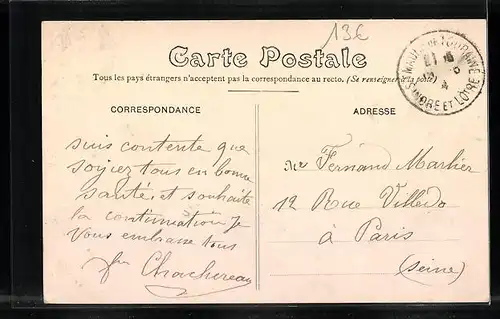 13€
Carte Postale
Tous les pays étrangers n'acceptent pas la correspondance au recto. (Se renseigner à la poste)
CORRESPONDANCE
ADRESSE
STE MAURE DE TOURAINE
INDRE ET LOIRE
suis contente que
soyiez tous en bonne
santé et souhaite
la continuation Je
Vous embrasse tous
Fernand Marlier
12 Rue Villedo
à Paris
(Seine)